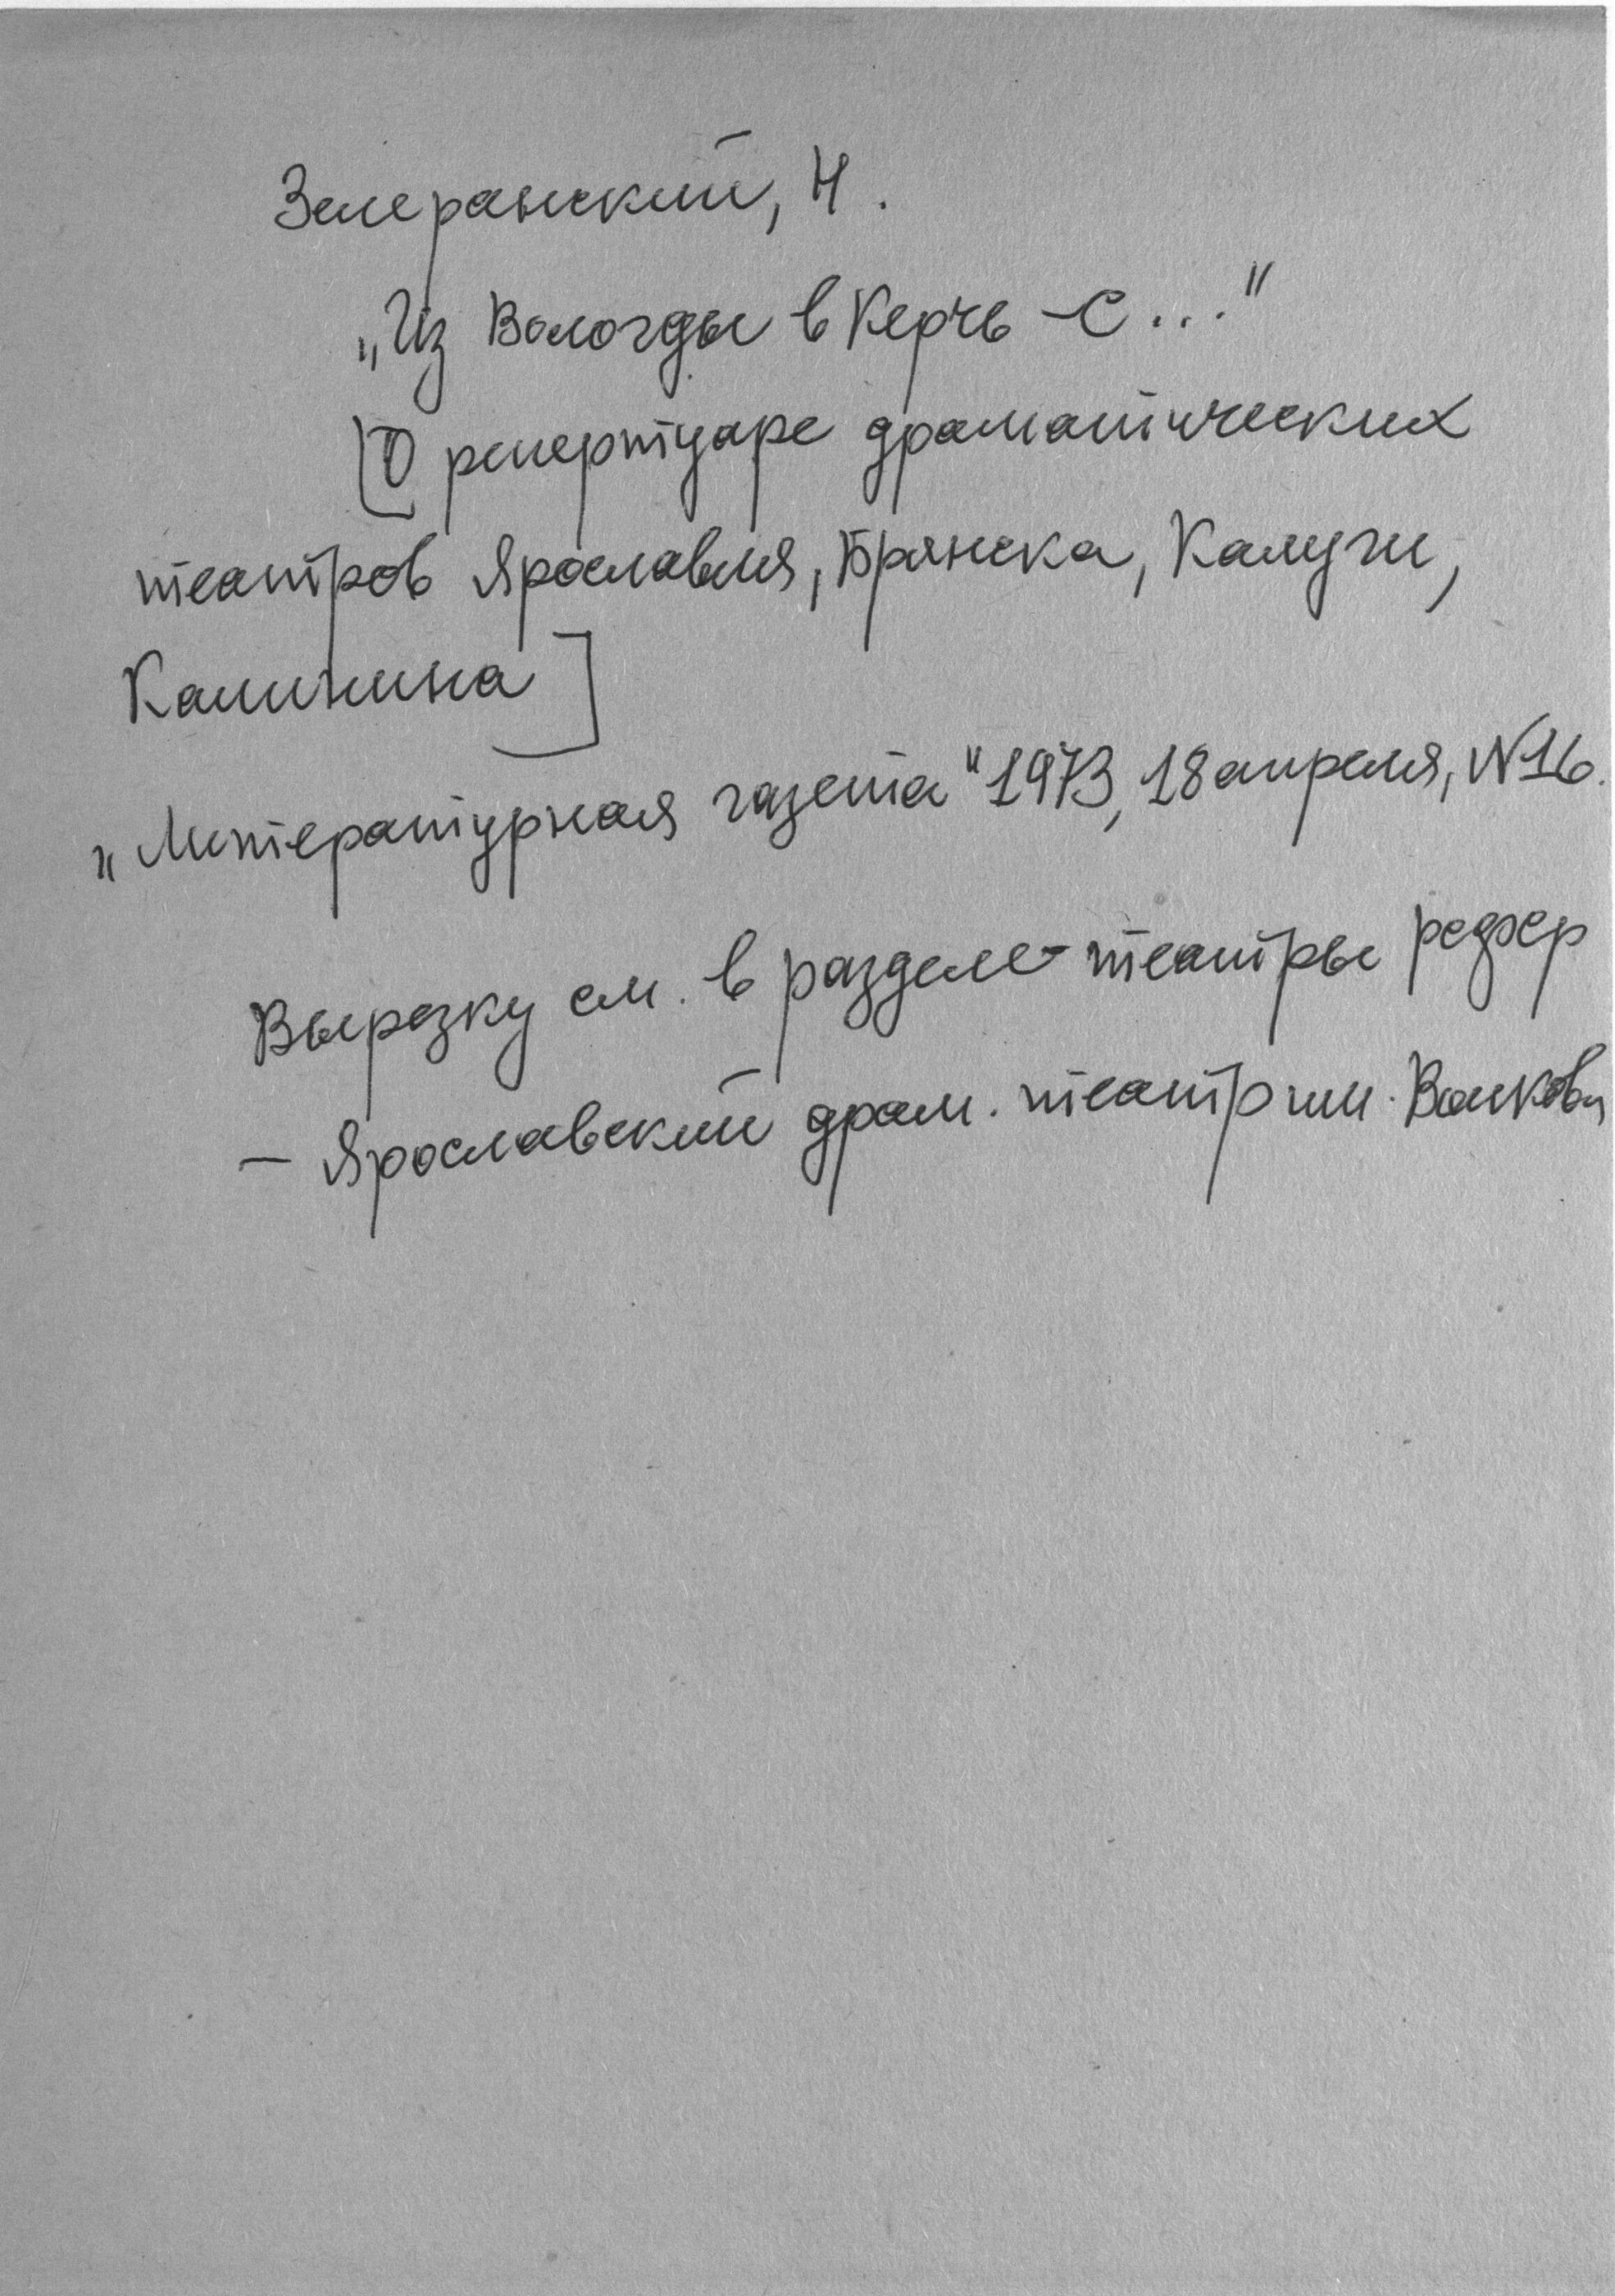 Зелеранский, Н.
„Из Вологды в Керчь – С..."
[О репертуаре драматических
театров Ярославля, Брянска, Калуги,
Калинина]
„Литературная газета" 1973, 18 апреля, N16.
Вырезку см. в разделе – театры
– Ярославский драм. театр им. Волкова